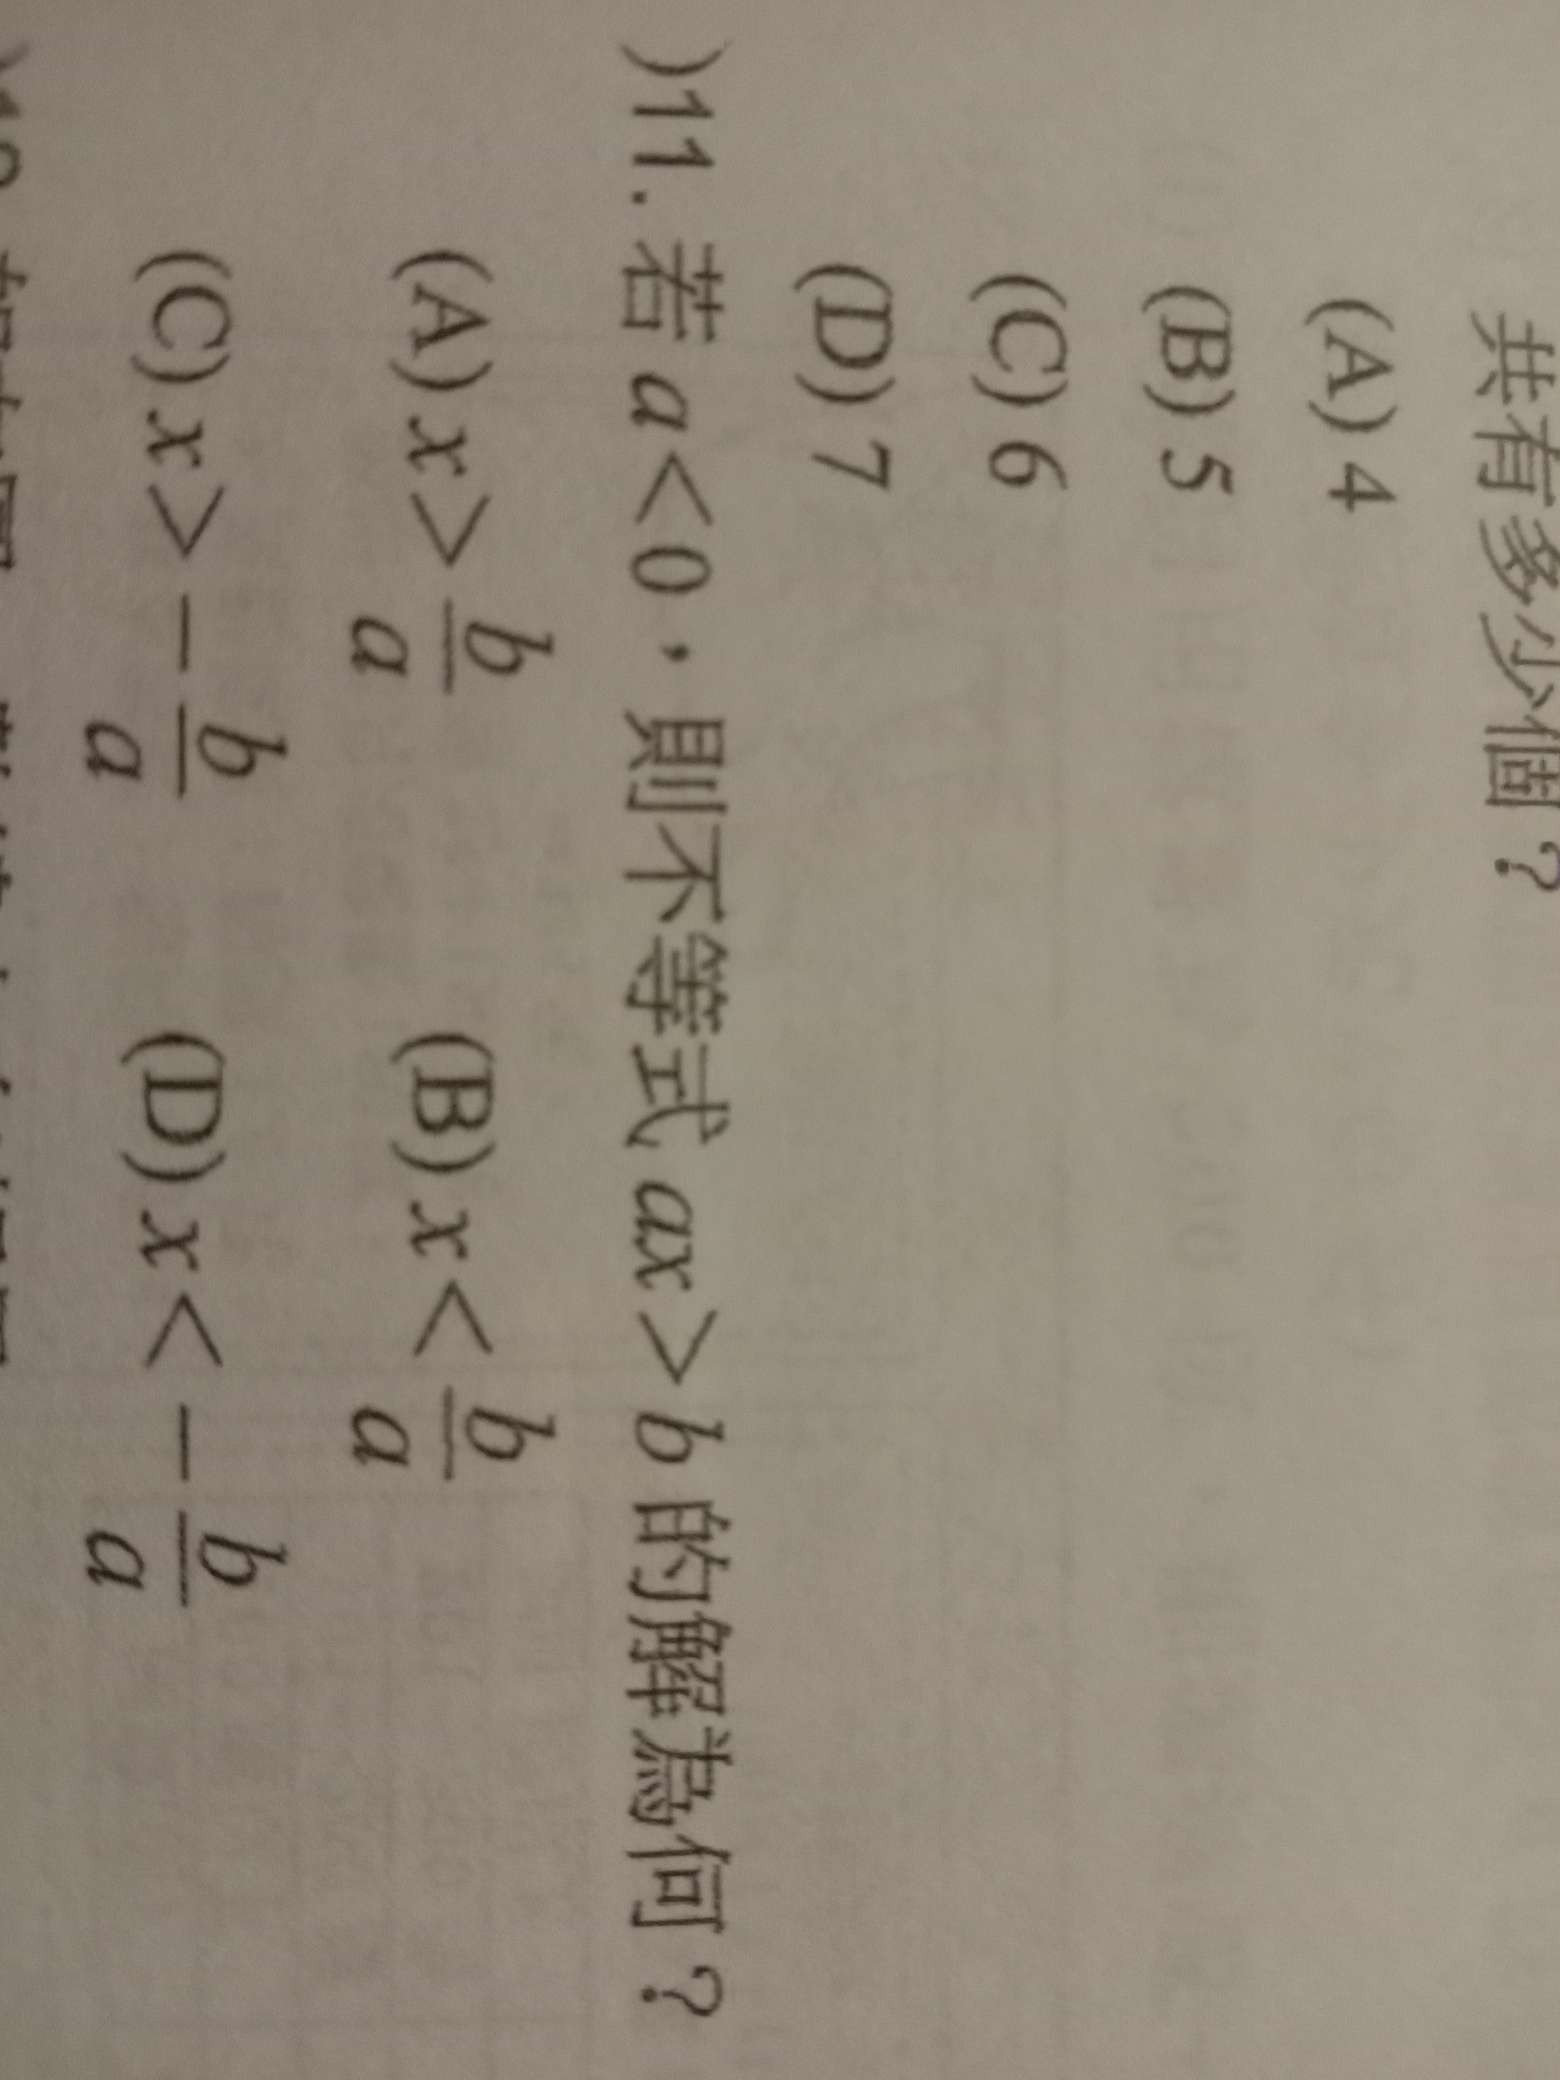 共有多少個？
(A) 4
(B) 5
(C) 6
(D) 7
)11. 若 a<0，則不等式 ax>b 的解為何？
(A) x> b/a (B) x< b/a
(C) x> - b/a (D) x< - b/a